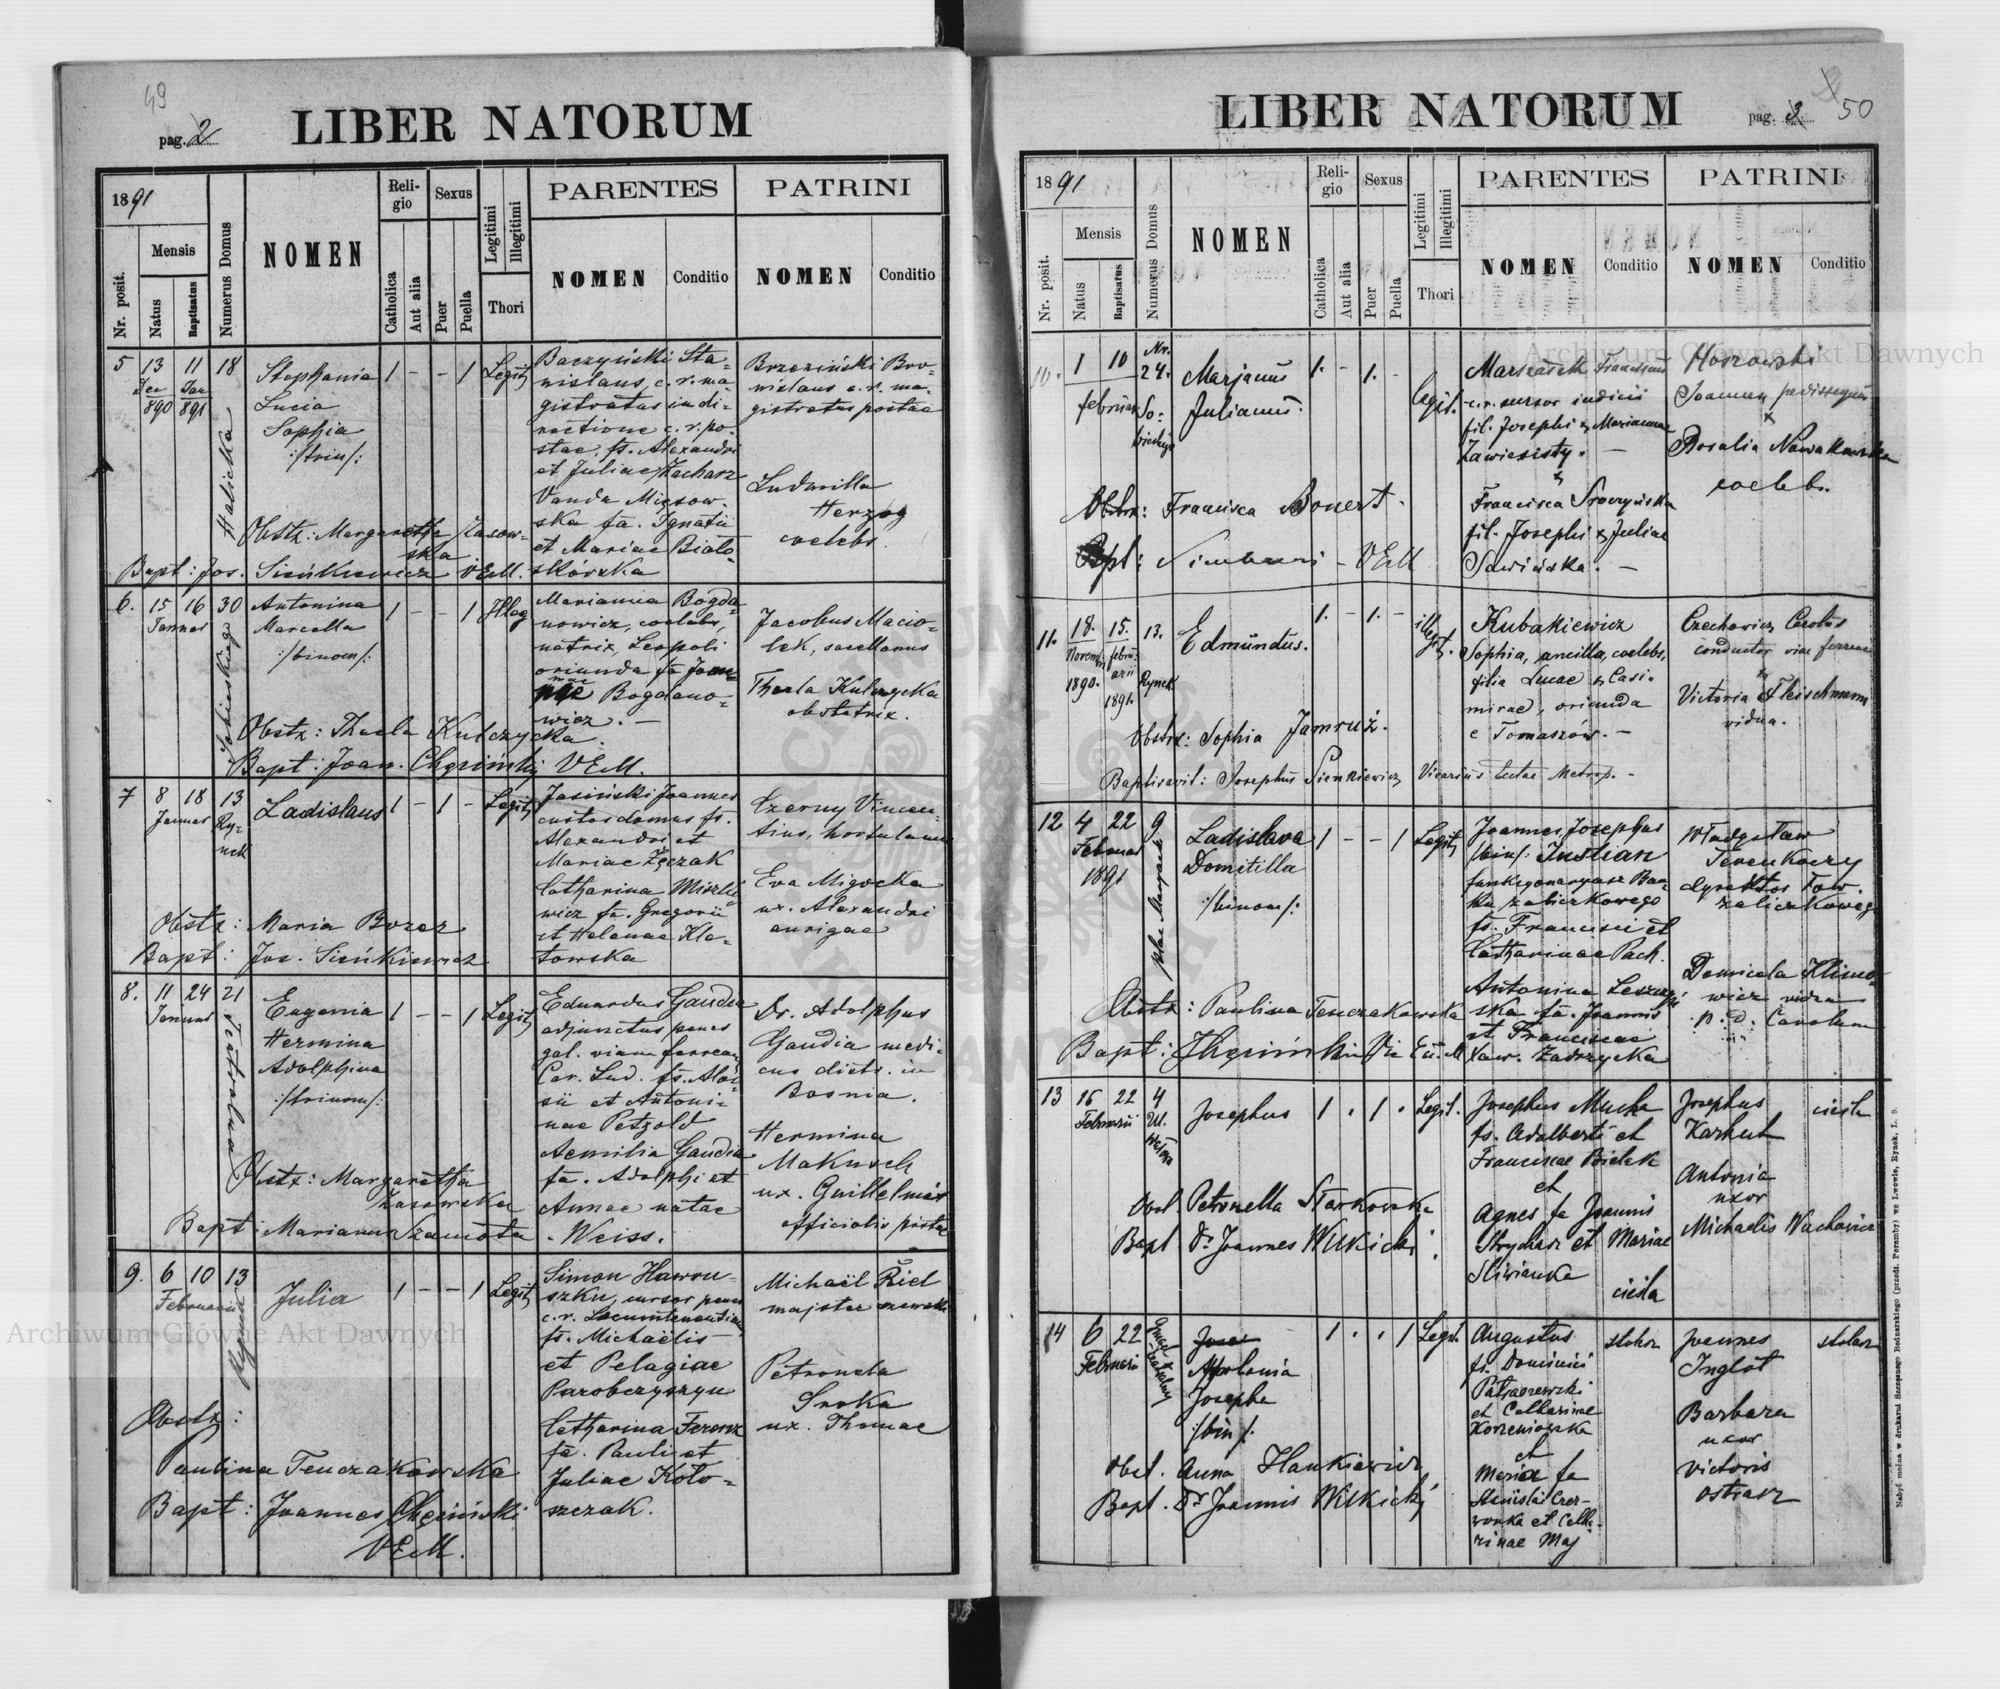 49
pag. 2
LIBER NATORUM
1891
Mensis
Nr. posit.
Natus
Baptisatus
Numerus Domus
NOMEN
Religio
Catholica
Aut alia
Sexus
Puer
Puella
Legitimi
Illegitimi
Thori
PARENTES
NOMEN
Conditio
PATRINI
NOMEN
Conditio
5 13 11 18
Dec Jan
890 891
Halicka
Stephania
Lucia
Sophia
/:trin:/
1 - - 1 Legit
Baczyński Sta=
nislaus, c. r. ma=
gistratus in di=
rectione c. r. po=
stae, fs. Alexandri
et Juliae Zacharz
Vanda Mięsow
ska fa. Ignatii
et Mariae Biało
skórska
Brzeziński Bro=
nislaus c. r. ma=
gistratus postae
Ludmilla
Herzog
coelebs.
Obstx: Margaretha Zasow=
ska
Bapt: Jos. Sieńkiewicz VEM.
6. 15 16 30
Januar
Sobieskiego
Antonina
Marcella
/:binom:/
1 - - 1 Illeg
Marianna Bogda=
nowicz, coelebs,
natrix, Leopoli
oriunda fa Joan
nae Bogdano=
wicz. -
Jacobus Macio=
lek, sacellanus
Thecla Kulczycka
obstetrix.
Obstx: Thecla Kulczycka.
Bapt: Joan. Chęciński VEM.
7 8 18 13
Januar
Ry=
nek
Ladislaus
1 - 1 - Legit
Jasiński Joannes
custos domus fs.
Alexandri et
Mariae Zęczak
Catharina
wicz fa. Gregorii
et Helenae Kle=
towska
Czerny Vincen=
tius, hortulanus
Eva Migocka
ux. Alexandri
aurigae
Obstx: Maria Borez
Bapt: Jos. Sieńkiewicz
8. 11 24 21
Januar
Teatralna
Eugenia
Hermina
Adolphina
/:trinom:/
1 - - 1 Legit
Eduardus Gaudia
adjunctus penes
gal. viam ferream
Car. Lud. fs. Aloi=
sii et Antoni=
nae Petzold
Aemilia Gaudia
fa. Adolphi et
Annae natae
. Weiss.
Dr. Adolphus
Gaudia medi=
cus distr. in
Bosnia.
Hermina
Makusch
ux. Guillelmi
officialis postae
Obstx: Margaretha
Zasowska
Bapt: Marianus Szamota
9. 6 10 13
Februarii
Rynek
Julia
1 - - 1 Legit
Simon Hawry=
szku, cursor penes
c. r. Locumtenentiam
fs. Michaëlis
et Pelagiae
Parobczyszyn
Catharina Ferenz
fa. Pauli et
Juliae Koło=
szczak.
Michaël Riel
majster szewski
Petronela
Sroka
ux. Thomae
Obstx:
Paulina Tenczakowska
Bapt: Joannes Chęciński
VEM.
LIBER NATORUM
pag. 3
50
1891
Mensis
Nr. posit.
Natus
Baptisatus
Numerus Domus
NOMEN
Religio
Catholica
Aut alia
Sexus
Puer
Puella
Legitimi
Illegitimi
Thori
PARENTES
NOMEN
Conditio
PATRINI
NOMEN
Conditio
10. 1 10 Nr. 24.
februar
Marjanus
Julianus.
1. - 1. -
legit.
Marszałek Franciscus
c. r. cursor iudicii
fil. Josephi & Mariannae
Zawiesisty. -
&
Francisca Sroczyńska
fil. Josephi & Juliae
Sawińska. -
Hoszowski
Joannes pedissequus
&
Rosalia Nowakowska
coelebs.
Obstx: Francisca Bonert.
Bpt: - VEM
11. 18. 15. 13.
Novem 1890. februarii 1891. Rynek
Edmundus.
1. - 1. -
illegit.
Kubakiewicz
Sophia, ancilla, coelebs,
filia Lucae & Casi=
mirae, oriunda
e Tomaszów. -
Czechowicz Carolus
conductor viae ferreae
&
Victoria Fleischmann
vidua.
Obstx: Sophia Jamruż.
Baptisavit: Josephus Sienkiewicz Vicarius Eccl. Metrop. -
12 4 22 9
Februar
1891
plac Maryacki
Ladislava
Domitilla
/:binom:/
1 - - 1 Legit
Joannes Josephus
/bin/: Justian
funkcyonaryusz Ban=
ku zaliczkowego
fs. Francisci et
Catharinae Pach.
Antonina Leszczyń
ska fa. Joannis
et Franciscae
Xaw. Zadrzycka
Władysław
Terenkoczy
dyrektor Tow.
zaliczkowego
Domicela Klimo=
wicz vidua
p. d. Carolum
Obstx: Paulina Tenczakowska
Bapt: Chęciński Vic Ec. M
13 16 22 4
Februarii
Ul.
Josephus
1 . 1 . Legit.
Josephus Mucha
fs. Adalberti et
Franciscae Bielak
et
Agnes fa Joannis
Strychar et Mariae
Sliwianka
cieśla
Josephus
Karkut
cieśla
Antonia
uxor
Michaelis Wachowicz
Obst. Petronella Starkowska
Bapt. Dr Joannes Wilkicki.
14 6 22
Februarii
Josef
Apolonia
Josepha
/bin/.
1 . . 1 Legit.
Augustus
fs. Dominici
Patraszewski
et Catharinae
Korzeniowska
et
Maria fa
Stanislai Czer=
wonka et Catha=
rinae Maj
stolarz
Joannes
Inglot
stolarz
Barbara
uxor
Victoris
Ostrarz
Obst. Anna Hankiewicz
Bapt. Dr Joannis Wilkicki
Nabyć można w drukarni Szczęsnego Bednarskiego (przedt. Poremby) we Lwowie, Rynek, L. 9.
Archiwum Główne Akt Dawnych
Archiwum Główne Akt Dawnych